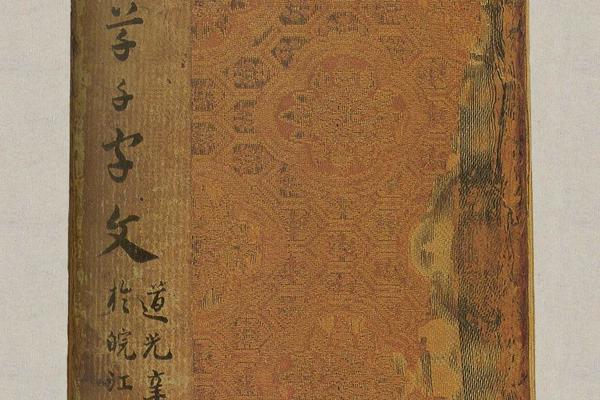 草千字文
道光辛
於皖江